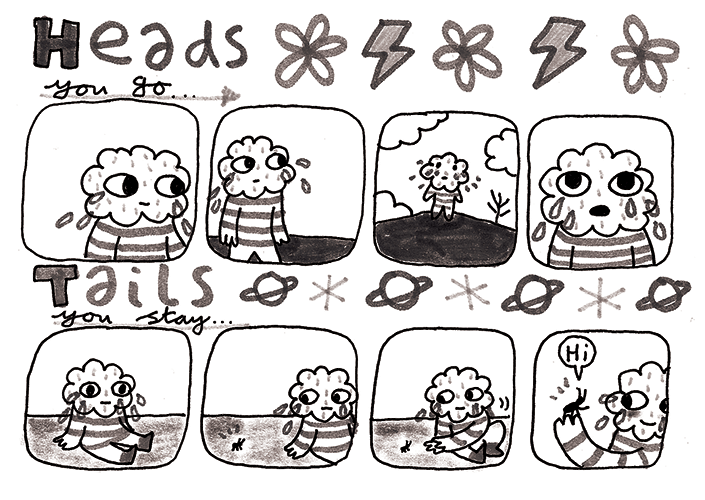 Heads
you go...
Tails
you stay...
Hi